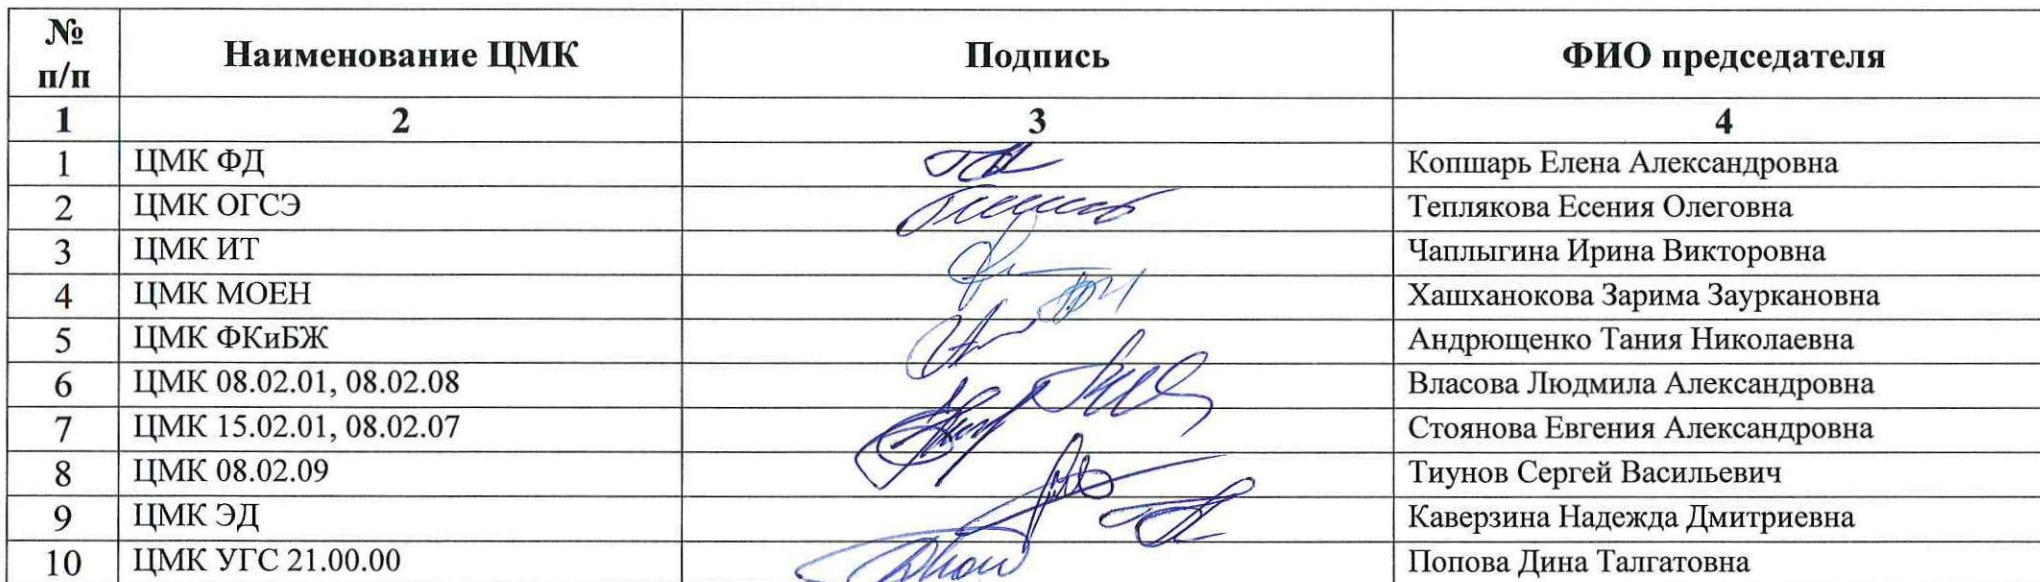 № п/п Наименование ЦМК Подпись ФИО председателя
1 2 3 4
1 ЦМК ФД Копшарь Елена Александровна
2 ЦМК ОГСЭ Теплякова Есения Олеговна
3 ЦМК ИТ Чаплыгина Ирина Викторовна
4 ЦМК МОЕН Хашханокова Зарима Заурkановна
5 ЦМК ФКиБЖ Андрющенко Тания Николаевна
6 ЦМК 08.02.01, 08.02.08 Власова Людмила Александровна
7 ЦМК 15.02.01, 08.02.07 Стоянова Евгения Александровна
8 ЦМК 08.02.09 Тиунов Сергей Васильевич
9 ЦМК ЭД Каверзина Надежда Дмитриевна
10 ЦМК УГС 21.00.00 Попова Дина Талгатовна